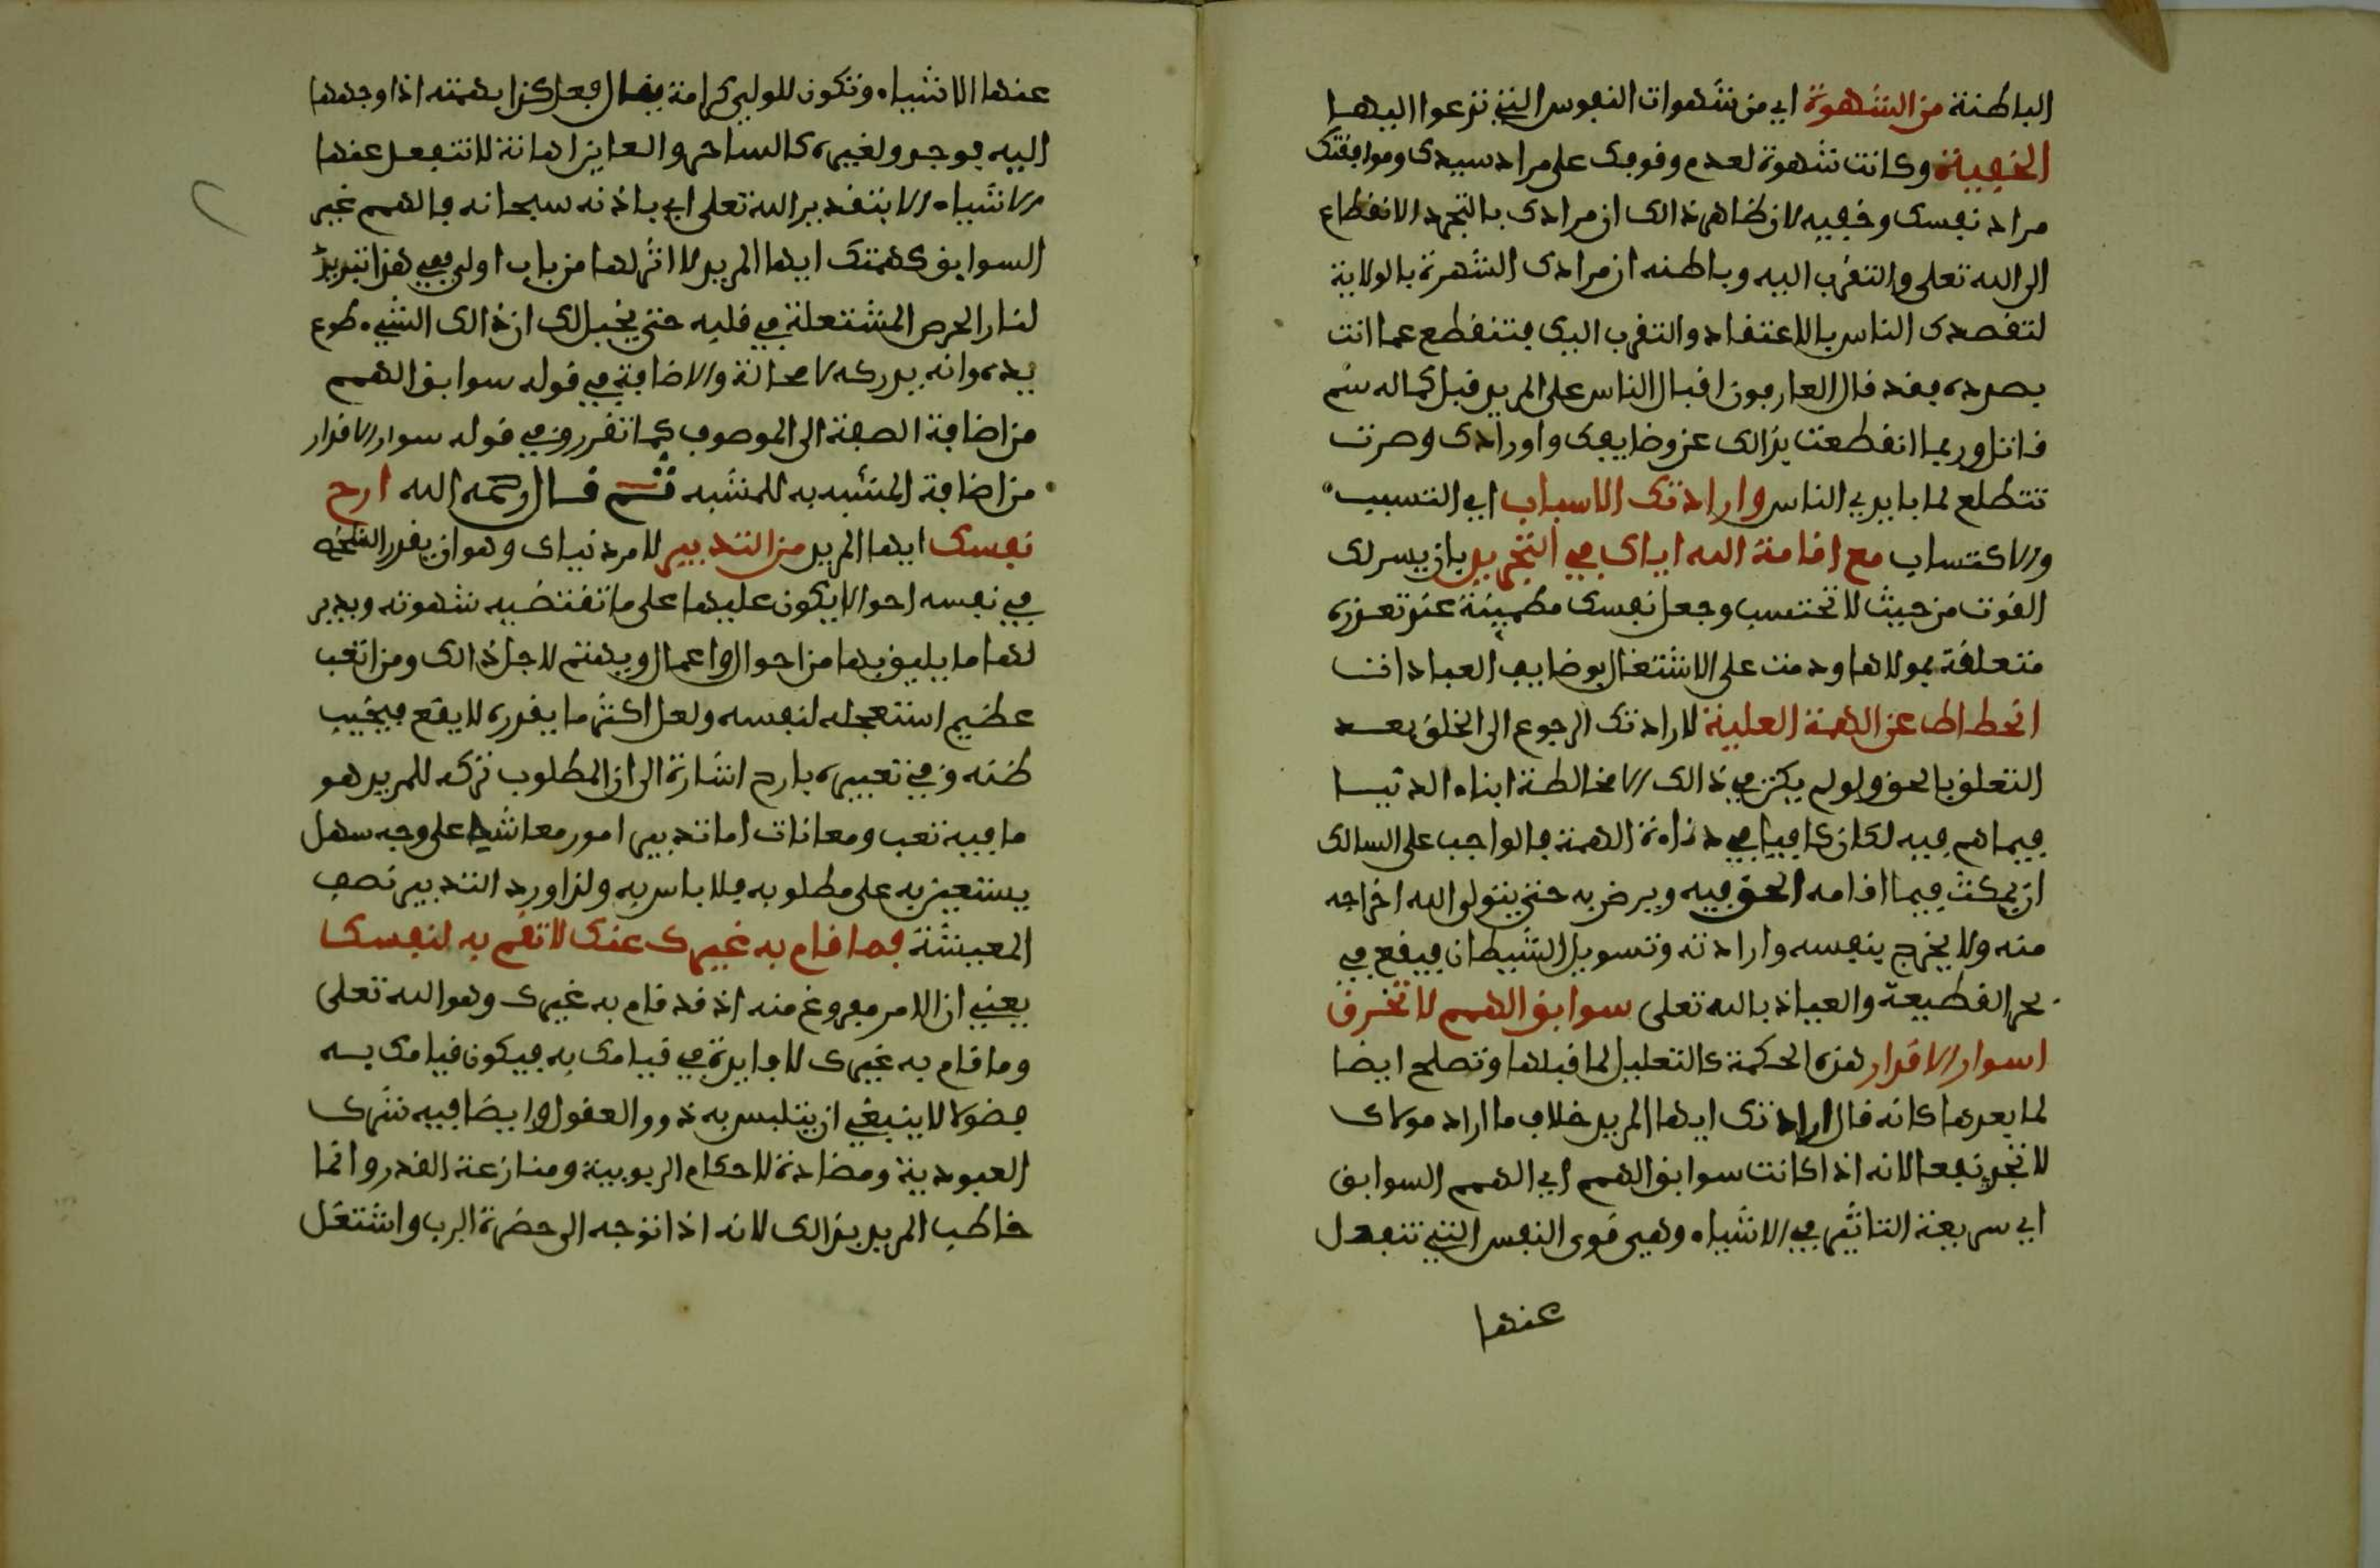 الباطنة من الشهوة اي من شهوات النفوس التي تدعوا اليها
الخفية وكانت شهوة لعدم وقوفك على مراد سيدك وموافقتك
مراد نفسك وخفيه لان ظاهر ذالك ان مرادك بالتجرد الانقطاع
الى الله تعلى والتقرب اليه وباطنه ان مرادك الشهرة بالولاية
لتقصدك الناس بالاعتقاد والتقرب اليك فتنقطع عما انت
بصدده فقد قال العارفون اقبال الناس على المريد قبل كماله سم
قاتل وربما انقطعت بذالك عن وضايفك واورادك وصرت
تتطلع لما بايدي الناس وارادتك الاسباب اي التسبب
والاكتساب مع اقامة الله اياك في التجريد بان يسر لك
القوت من حيث لا تحتسب وجعل نفسك مطمينة عند تعذره
متعلقة بمولاها ودمت على الاشتغال بوضايف العبادات
انحطاط عن الهمة العلية لارادتك الرجوع الى الخلق بعد
التعلق بالحق ولو لم يكن في ذالك الا مخالطة ابناء الدنيا
فيما هم فيه لكان كافيا في دناءة الهمة فالواجب على السالك
ان يمكث فيما اقامه الحق فيه ويرض به حتى يتولى الله اخراجه
منه ولا يخرج بنفسه وارادته وتسويل الشيطان فيقع في
بحر القطيعة والعياذ بالله تعلى سوابق الهمم لا تخرق
اسوار الاقدار هذه الحكمة كالتعليل لما قبلها وتصلح ايضا
لما بعدها كانه قال ارادتك ايها المريد خلاف ما اراد مولاك
لا تجد نفعا لانه اذا كانت سوابق الهمم اي الهمم السوابق
اي سريعة التاثير في الاشياء وهي قوى النفس التي تنفعل
عنها
عنها الاشياء وتكون للولي كرامة يقال فعل كذا بهمته اذا وجهها
اليه فوجد ولغيره كالساحر والعاين اهانة لا تنفعل عنها
الاشياء الا بتقدير الله تعلى اي باذنه سبحانه فالهمم غير
السوابق كهمتك ايها المريد لا اثر لها من باب اولى ففي هذا تبريد
لنار الحرص المشتعلة في قلبه حتى يخيل لك ان ذالك الشيء طوع
يده وانه يدركه لا محالة والاضافة في قوله سوابق الهمم
من اضافة الصفة الى الموصوف كما تقرر وفي قوله سوار الاقدار
من اضافة المشبه به للمشبه ثم قال رحمه الله ارح
نفسك ايها المريد من التدبير لامر دنياك وهو ان يقدر الشخص
في نفسه احوالا يكون عليها على ما تقتضيه شهوته ويدبر
لها ما يليق بها من احوال واعمال ويهتم لاجل ذالك ومن اتعب
عظيم استعجله لنفسه ولعل اكثر ما يقدره لا يقع فيخيب
ظنه وفي تعبيره بارح اشارة الى ان المطلوب تركه للمريد هو
ما فيه تعب ومعانات اما تدبير امور معاشه على وجه سهل
يستعين به على مطلوبه فلا باس به ولذا ورد التدبير نصف
المعيشة فما قام به غيرك عنك لا تقم به لنفسك
يعني ان الامر مفروغ منه اذ قد قام به غيرك وهو الله تعلى
وما قام به غيرك لا فايدة في قيامك به فيكون قيامك به
فضولا لا ينبغي ان يتلبس به ذوو العقول وايضا فيه ترك
العبودية ومضادة لاحكام الربوبية ومنازعة القدر وانما
خاطب المريد بذالك لانه اذا توجه الى حضرة الرب واشتغل